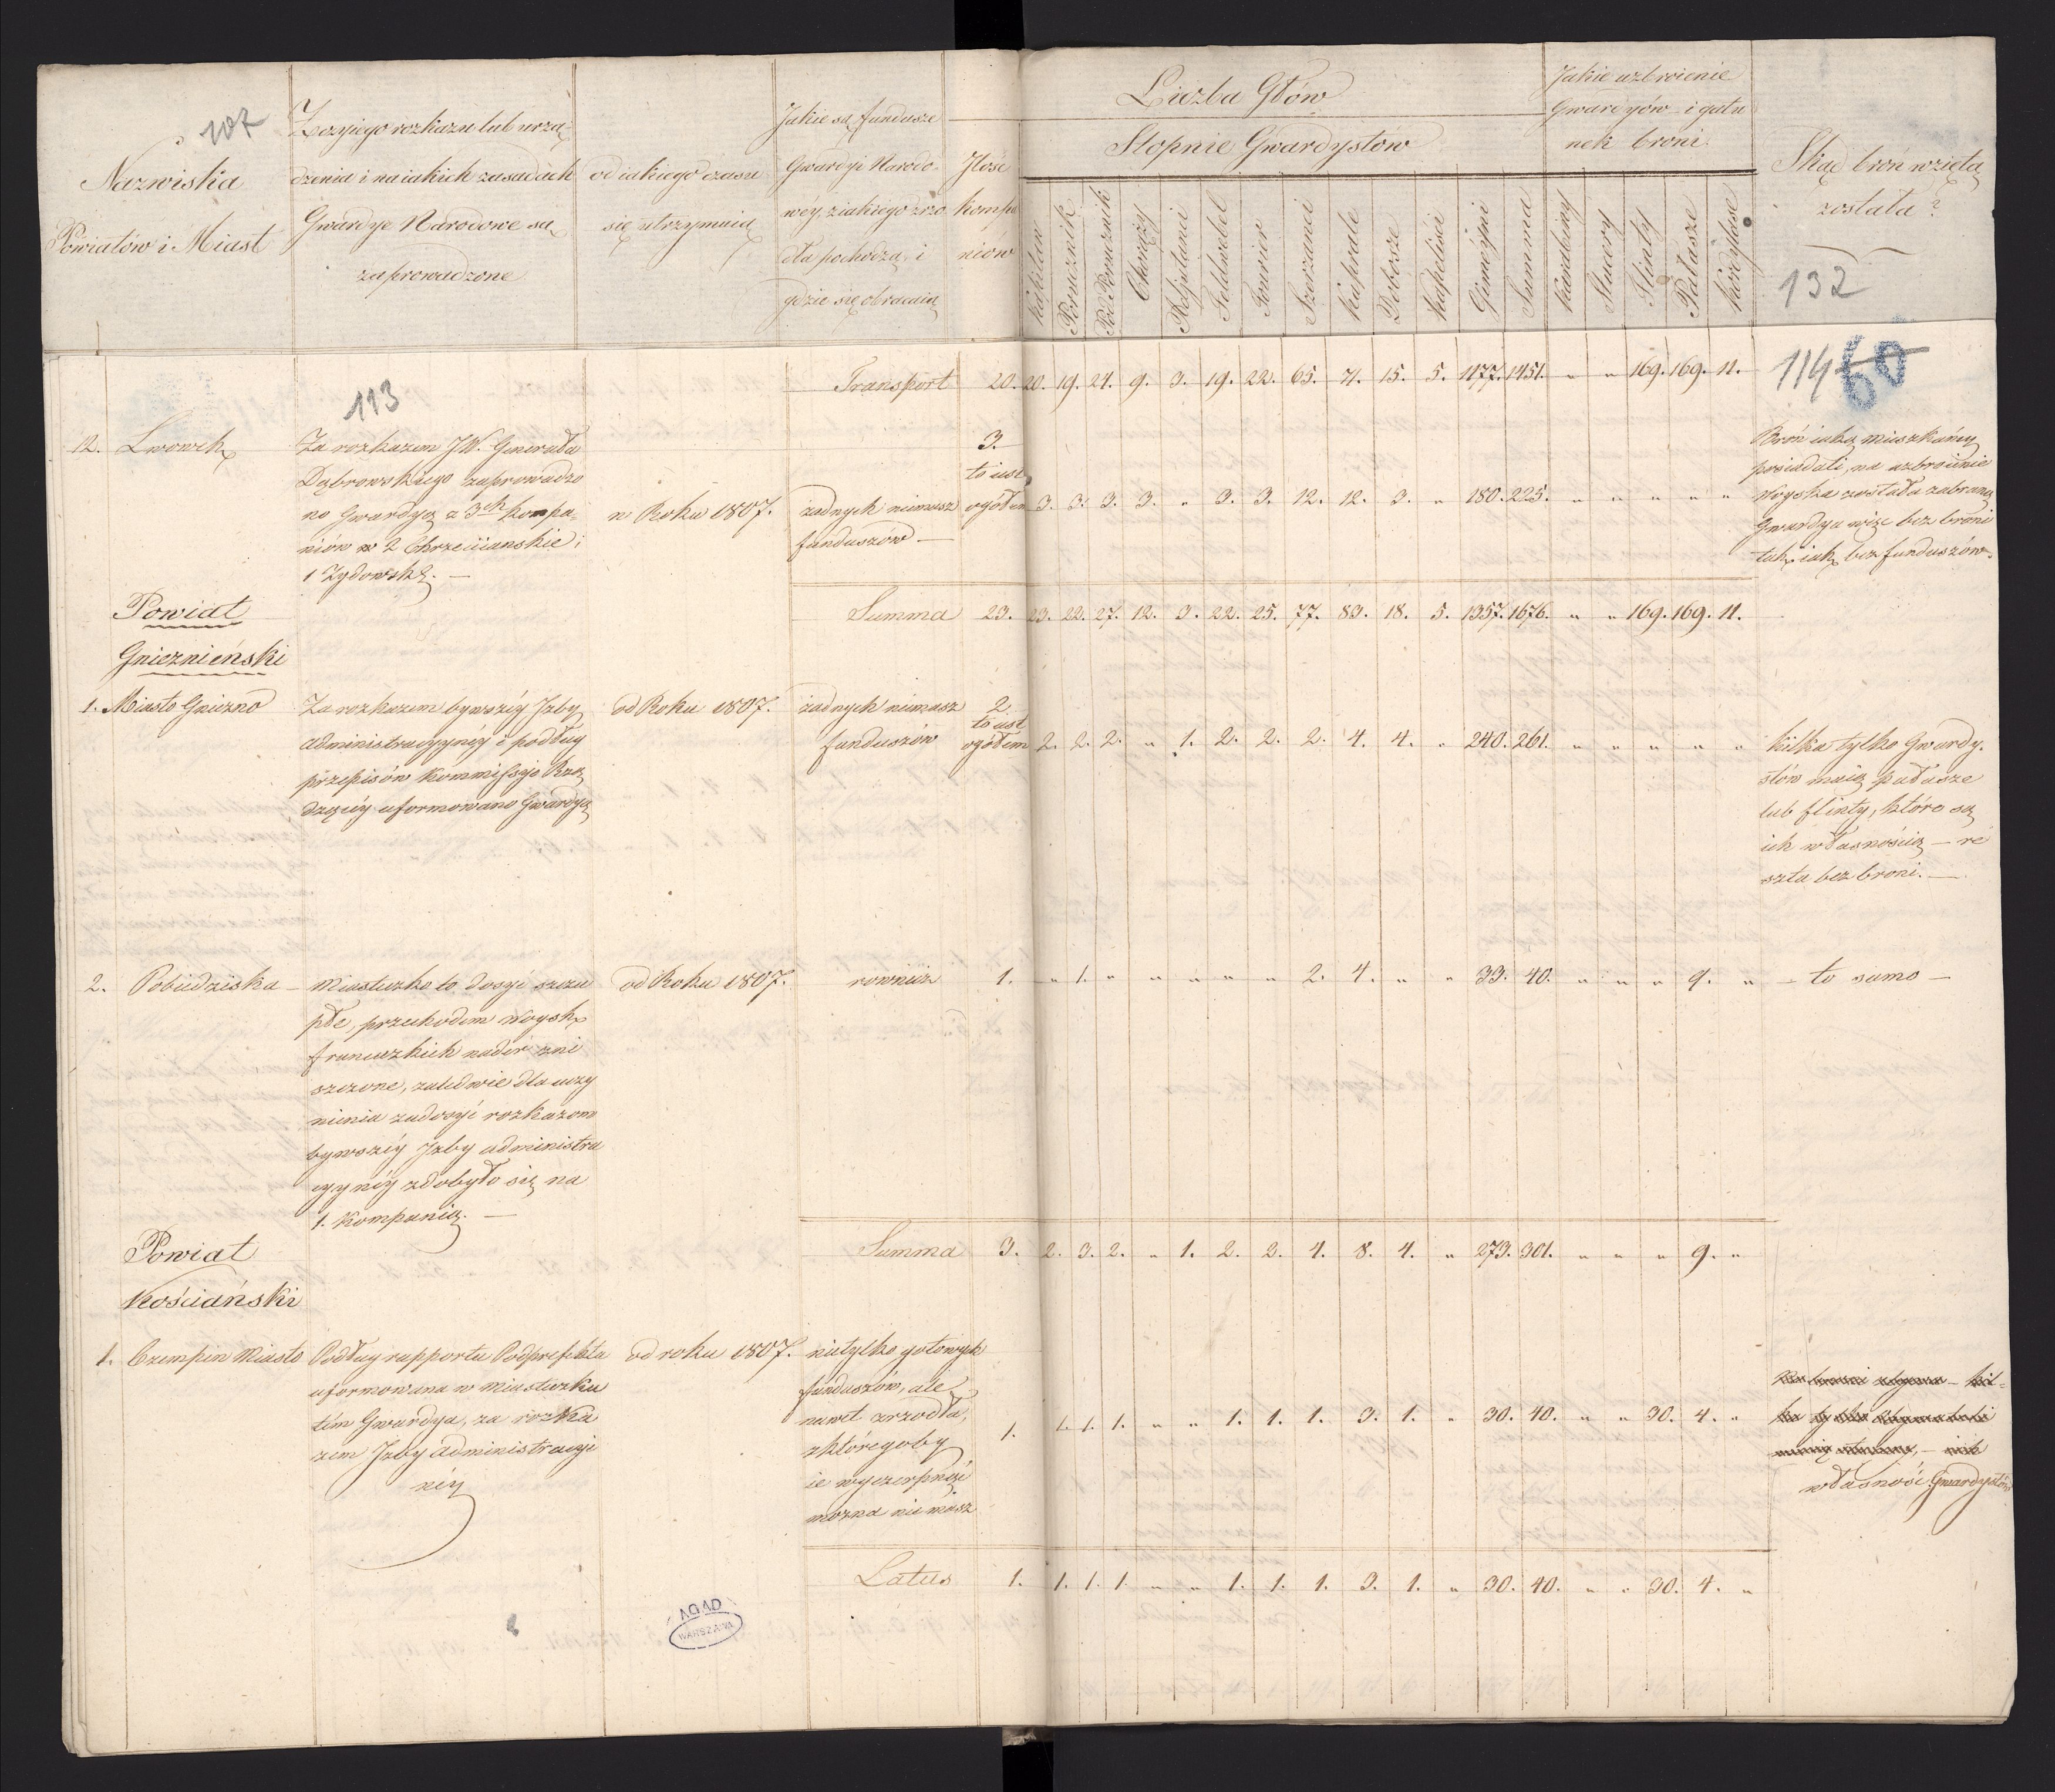 107
Nazwiska
Powiatów i Miast
Z czyjego rozkazu lub urzą-
dzenia i na iakich zasadach
Gwardye Narodowe są
zaprowadzone
od iakiego czasu
się utrzymuią
Jakie są fundusze
Gwardyi Narodo-
wéy, z iakiego źrzo
dła pochodzą, i
gdzie się obracaią
Jlość
kompa
niów
Liczba Głów
Stopnie Gwardystów
Kapitan
Porucznik
Pod Porucznik
Chorąży
Adjutanci
Feldwebel
Fourier
Szerzanci
Kaprale
Dobosze
Kapeliści
Gimeyni
Summa
Jakie uzbroienie
Gwardyów i gatu
nek broni.
Karabiny
Stucery
Flinty
Pałasze
Kordylase
Skąd broń wzięta
została?
132
Transport 20. 20. 19. 24. 9. 3. 19. 22. 65. 71. 15. 5. 1177. 1451. " " 169. 169. 11.
114 60
113
12. Lwowek
Za rozkazem JW. Generała
Dąbrowskiego zaprowadzo
no Gwardyą z 3ch kompa-
niów w 2 Chrzesciianskie i
1 Zydowską. —
w Roku 1807.
żadnych niemasz
funduszów —
3.
to iest
ogółem 3. 3. 3. 3. " 3. 3. 12. 12. 3. " 180. 225. " " " " "
Broń iaką mieszkańcy
posiadali, na uzbroienie
Woyska została zabrana
Gwardya więc bez broni
tak iak bez funduszów.
Summa 23. 23. 22. 27. 12. 3. 22. 25. 77. 83. 18. 5. 1357. 1676. " " 169. 169. 11.
Powiat
Gnieznieński
1. Miasto Gniezno
Za rozkazem bywszéy Jzby
Administracyynéy i podług
przepisów Kommissyi Rzą
dzącéy uformowano Gwardyą
od Roku 1807.
żadnych niemasz
funduszów
2
to iest
ogółem 2. 2. 2. " 1. 2. 2. 2. 4. 4. " 240. 261. " " " " "
kilka tylko Gwardy-
stów maią pałasze
lub flinty, które są
ich własnością — re
szta bez broni. —
2. Pobiedziska —
Miasteczko to dosyć szczu
płe, przechodem Woysk
francuzkich nader zni
szczone, zaledwie dla uczy
nienia zadosyć rozkazom
bywszéy Jzby administra
cyynéy zdobyło się na
1. Kompanią. —
od Roku 1807.
rownież 1. " 1. " " " " " 2. 4. " " 33. 40. " " " 9. "
— to samo —
Summa 3. 2. 3. 2. " 1. 2. 2. 4. 8. 4. " 273. 301. " " " 9. "
Powiat
Kościański
1. Czempin Miasto
Podług rapportu Podprefekta
uformowana w miasteczku
tém Gwardya, za rozka
zem Jzby Administracyi
néy
od roku 1807.
nietylko gotowych
funduszów, ale
nawet zrzodła,
z któregoby
ie wyczerpnąć
można nie masz
1. 1. 1. 1. " " 1. 1. 1. 3. 1. " 30. 40. " " 30. 4. "
własność Gwardystów
Latus 1. 1. 1. 1. " " 1. 1. 1. 3. 1. " 30. 40. " " 30. 4. "
AGAD
WARSZAWA